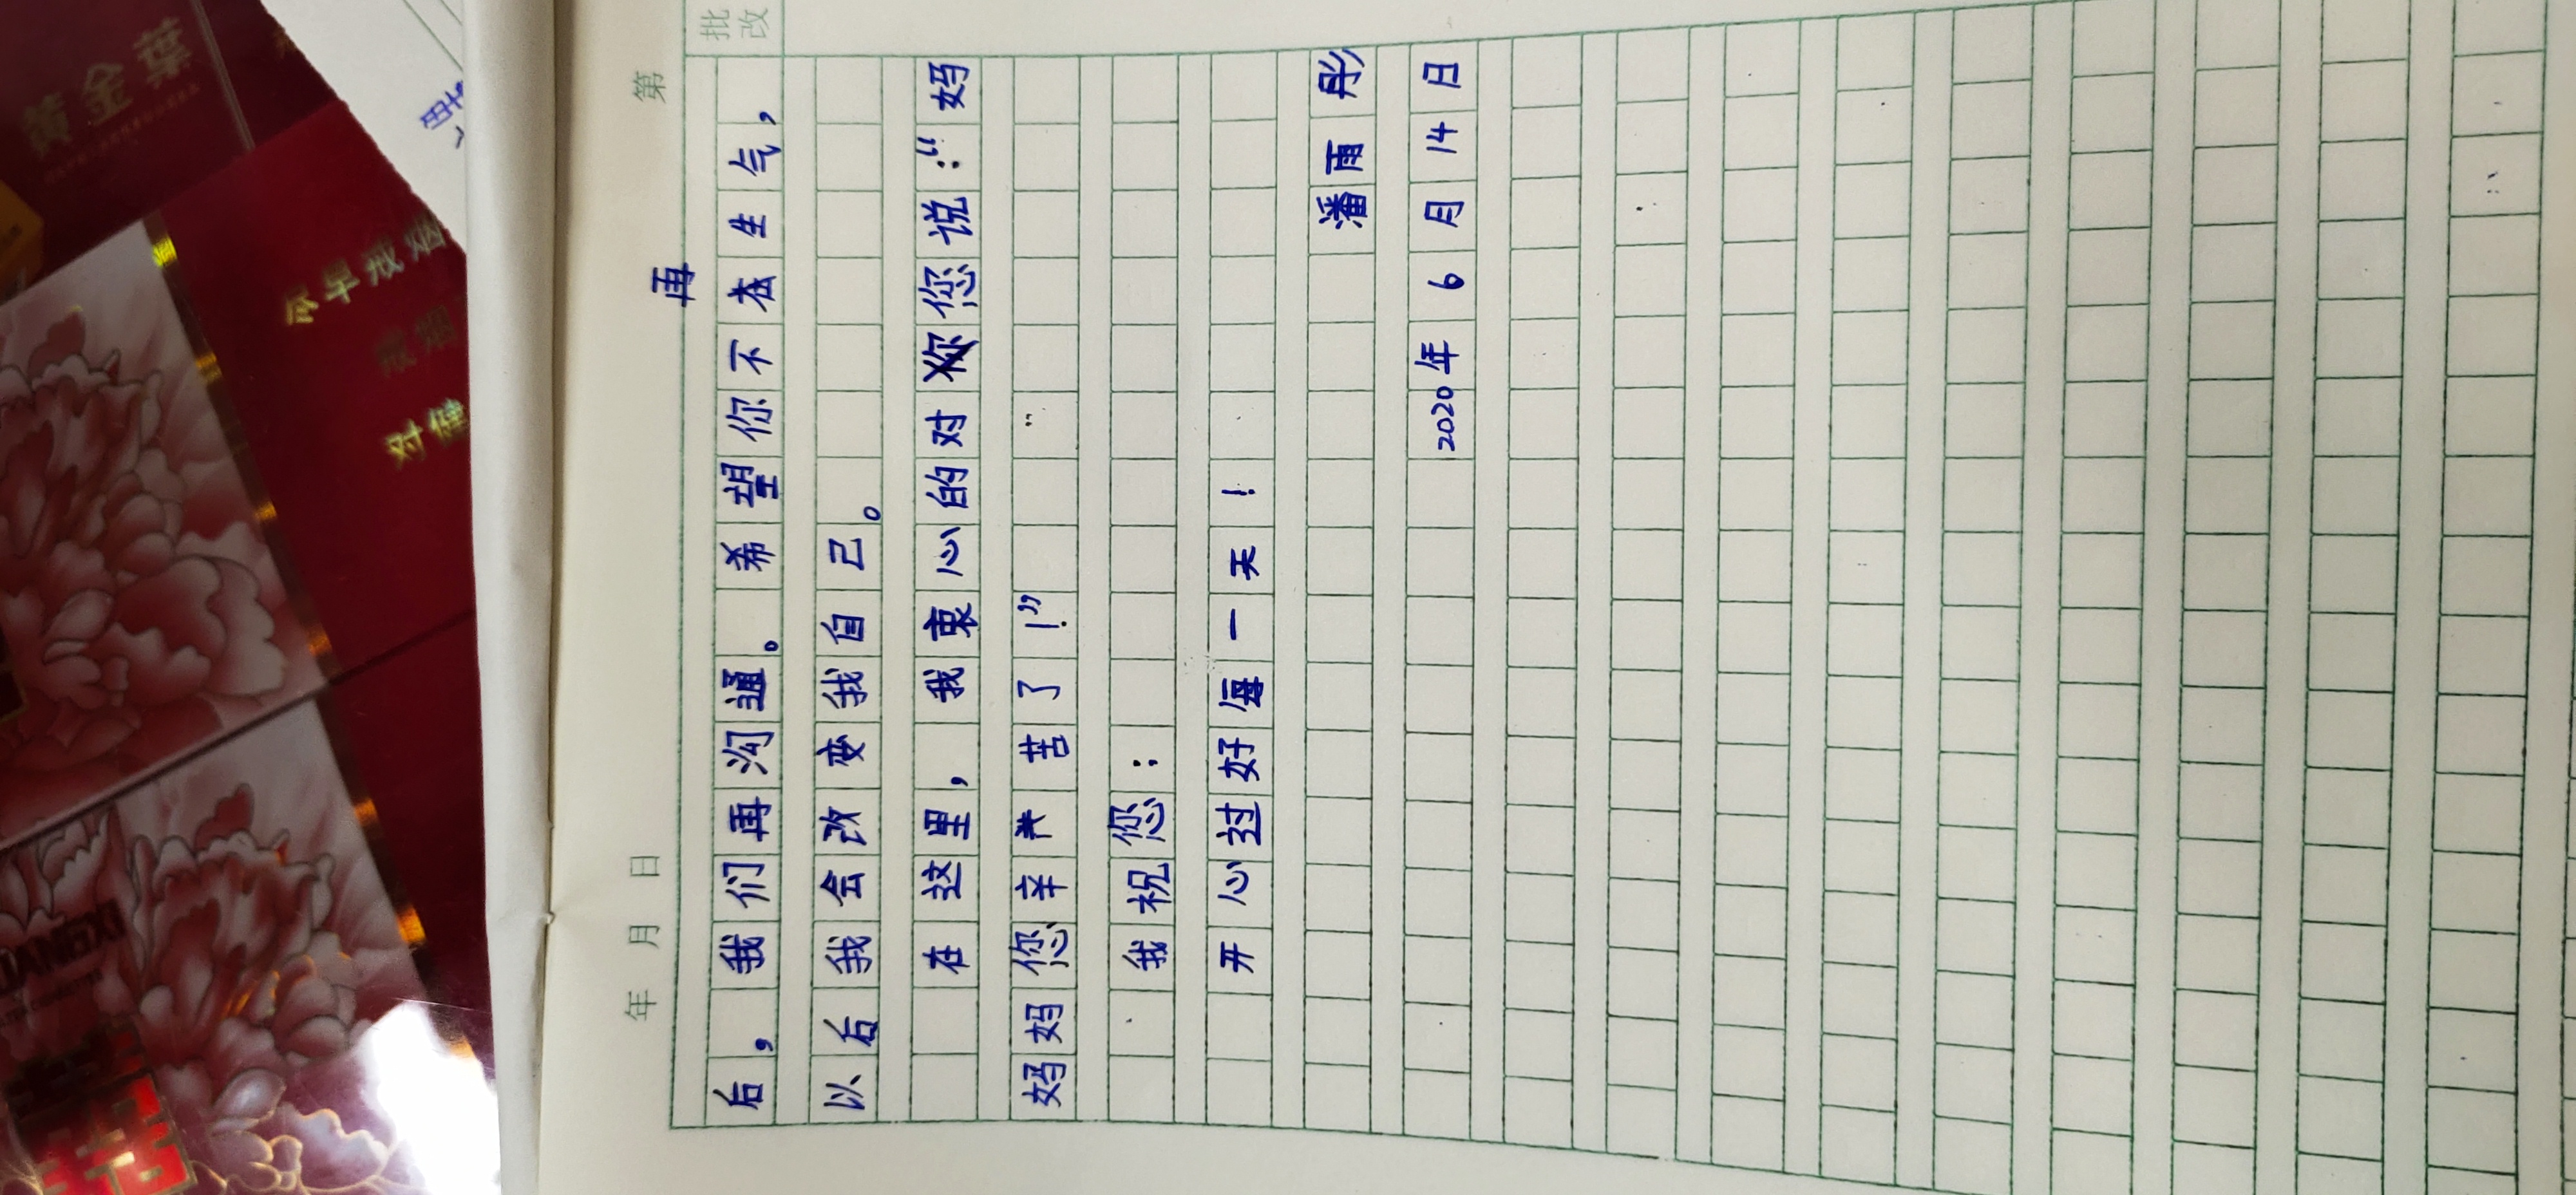 黄金葉
尽早戒烟
戒烟
对健
年 月 日 第
批改
再
后,我们再沟通。希望你不在生气,
以后我会改变我自己。
在这里,我衷心的对您说:“妈
妈妈您辛苦了!”
我祝您:
开心过好每一天!
潘雨彤
2020年6月14日